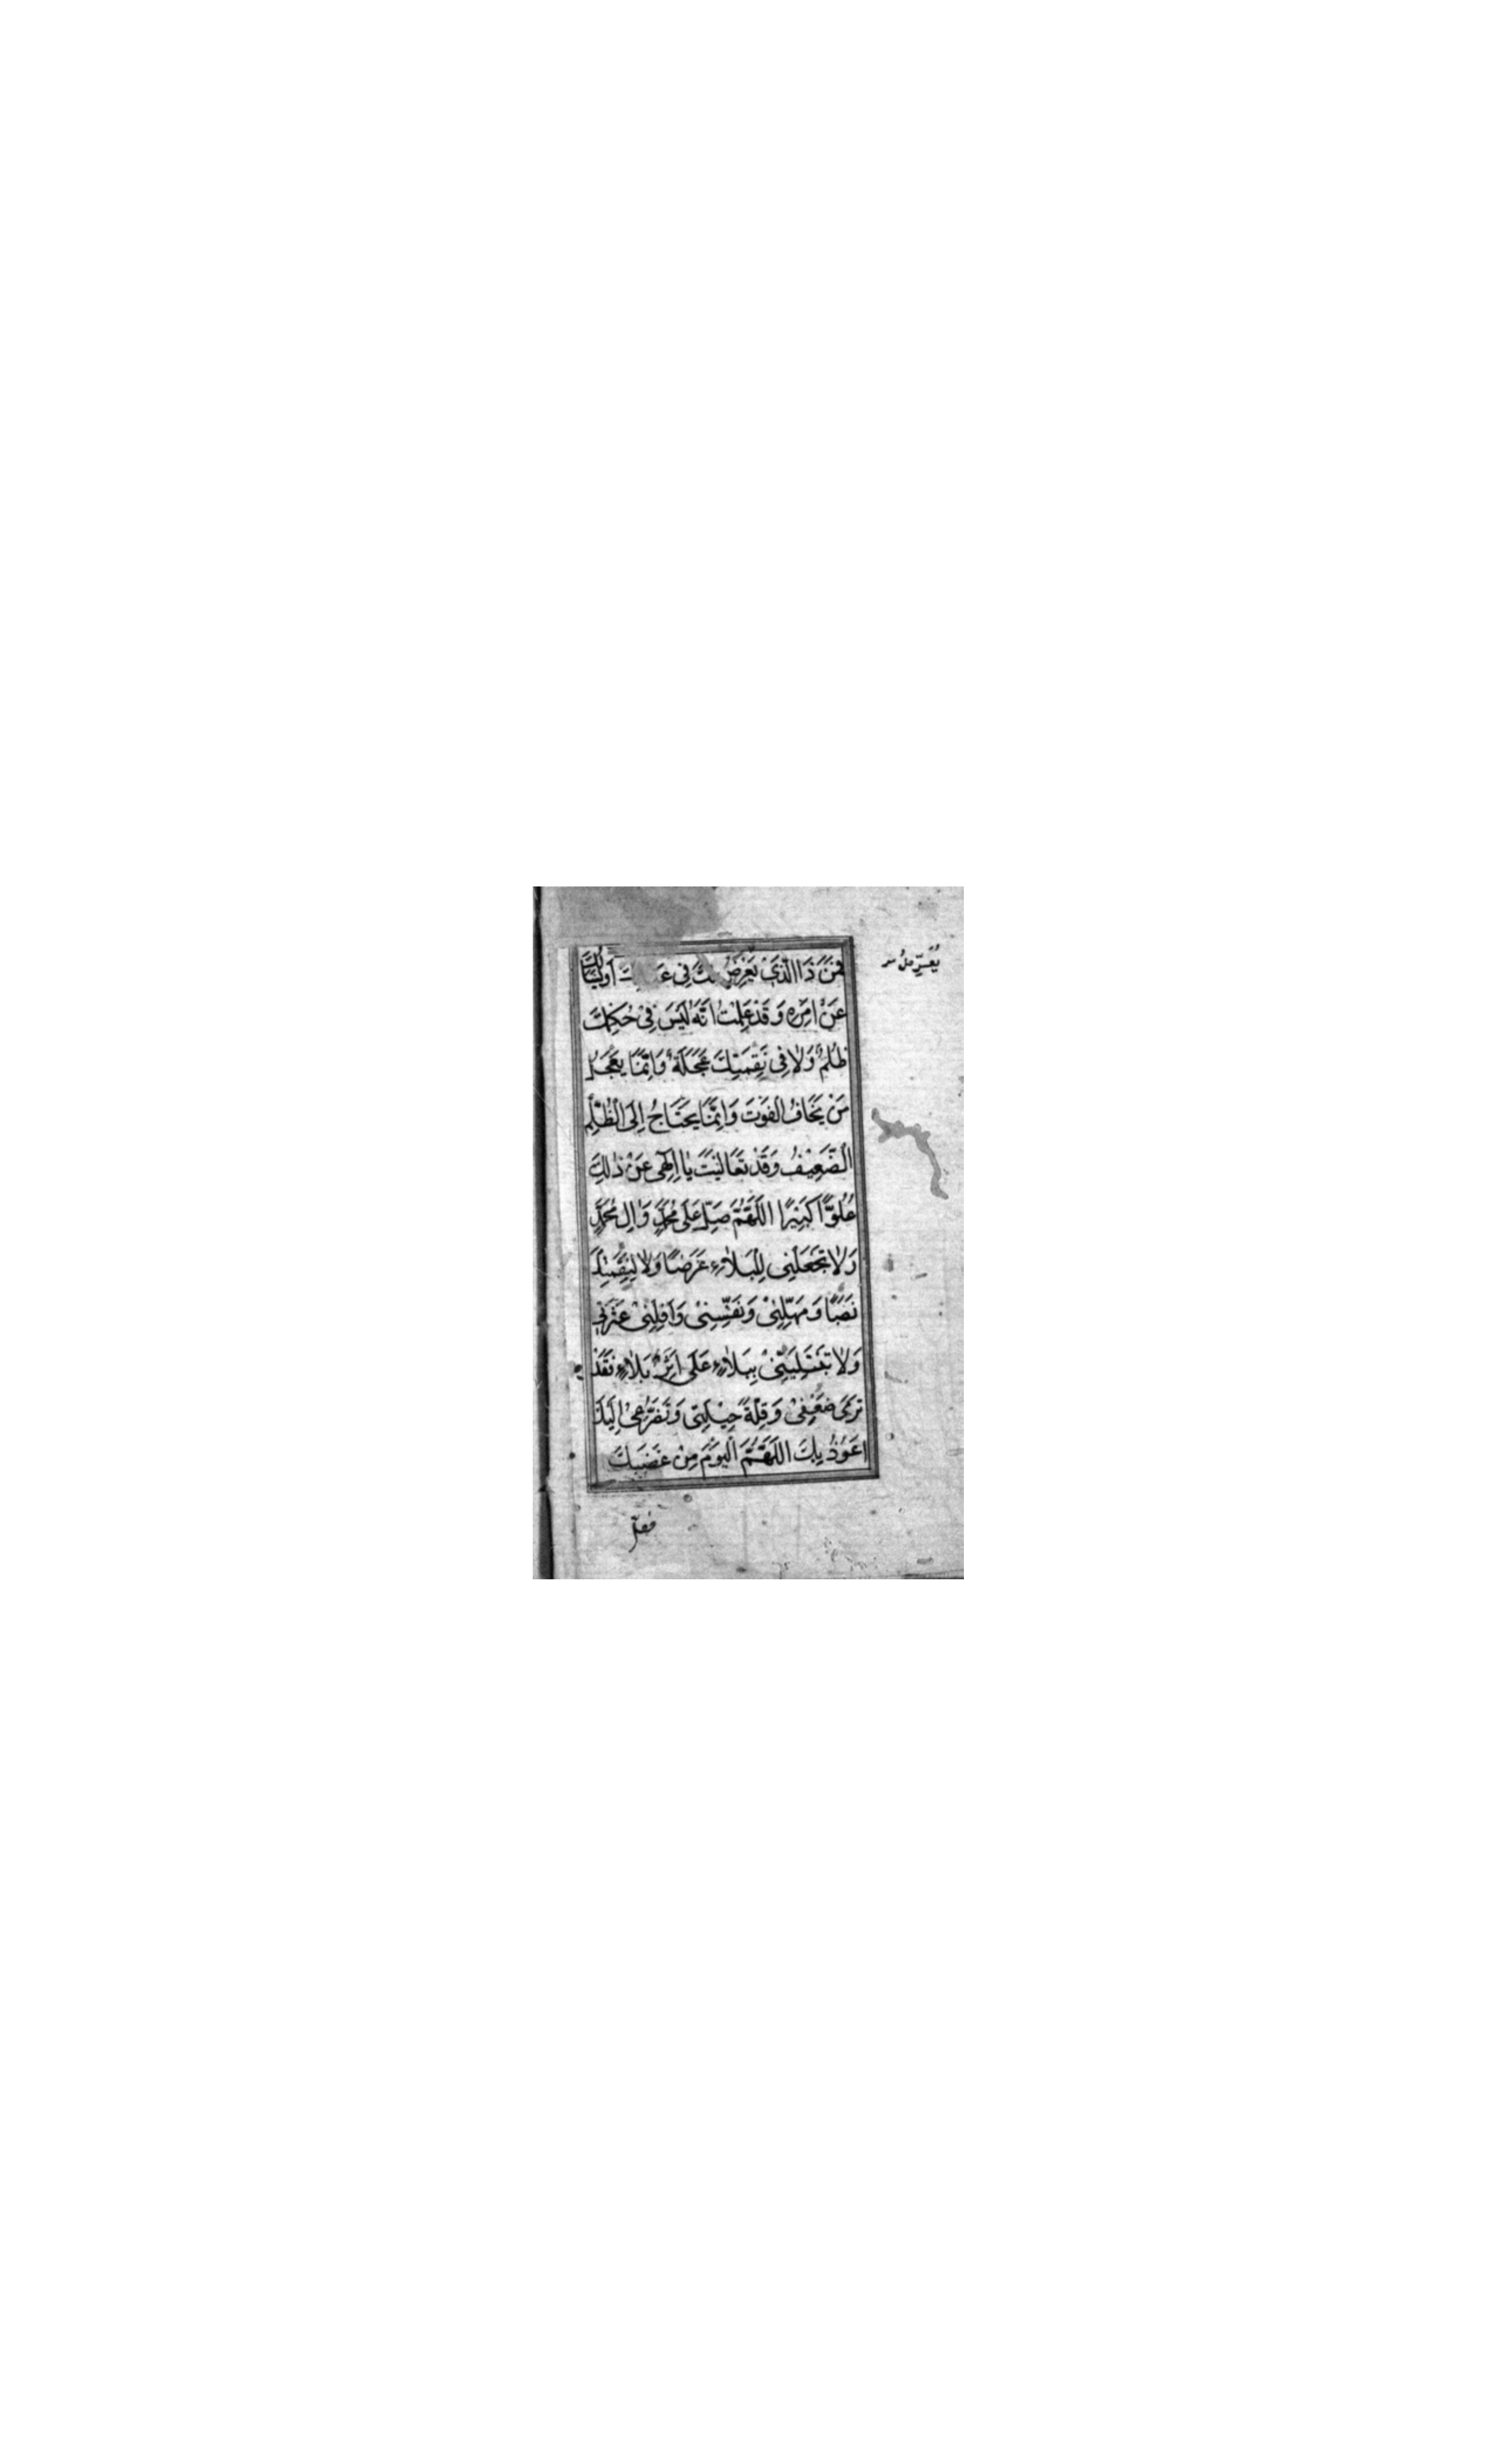 فَمَنْ ذَا الَّذِیْ یَعْرِضُ لَكَ فِی اَوْ یَسْاَلُكَ
عَنْ اَمْرِهِ وَ قَدْ عَلِمْتُ اَنَّهُ لَیْسَ فِیْ حُكْمِكَ
ظُلْمٌ وَلَا فِی نَقِمَتِكَ عَجَلَةٌ وَاِنَّمَا یَعْجَلُ
مَنْ یَخَافُ الْفَوْتَ وَاِنَّمَا یَحْتَاجُ اِلَی الْظُلْمِ
الْضَّعِیْفُ وَقَدْ تَعَالَیْتَ یَا اِلٰهِی عَنْ ذٰلِكَ
عُلُوًّا كَبِیْرًا اَللّٰهُمَّ صَلِّ عَلٰی مُحَمَّدٍ وَاٰلِ مُحَمَّدٍ
وَلَا تَجْعَلْنِی لِلْبَلَاۤءِ غَرَضًا وَلَا لِنَقِمَتِكَ
نَصَبًا وَ مَهِّلْنِیْ وَنَفِّسْنِیْ وَاَقِلْنِیْ عَثْرَتِیْ
وَلَا تَبْتَلِیَنِّیْ بِبَلَاۤءٍ عَلٰی اَثَرِ بَلَاۤءٍ فَقَدْ
تَرٰی ضَعْفِیْ وَ قِلَّةَ حِیْلَتِی وَتَضَرُّعِیْ اِلَیْكَ
اَعُوْذُ بِكَ اللّٰهُمَّ الْیَوْمَ مِنْ غَضَبِكَ